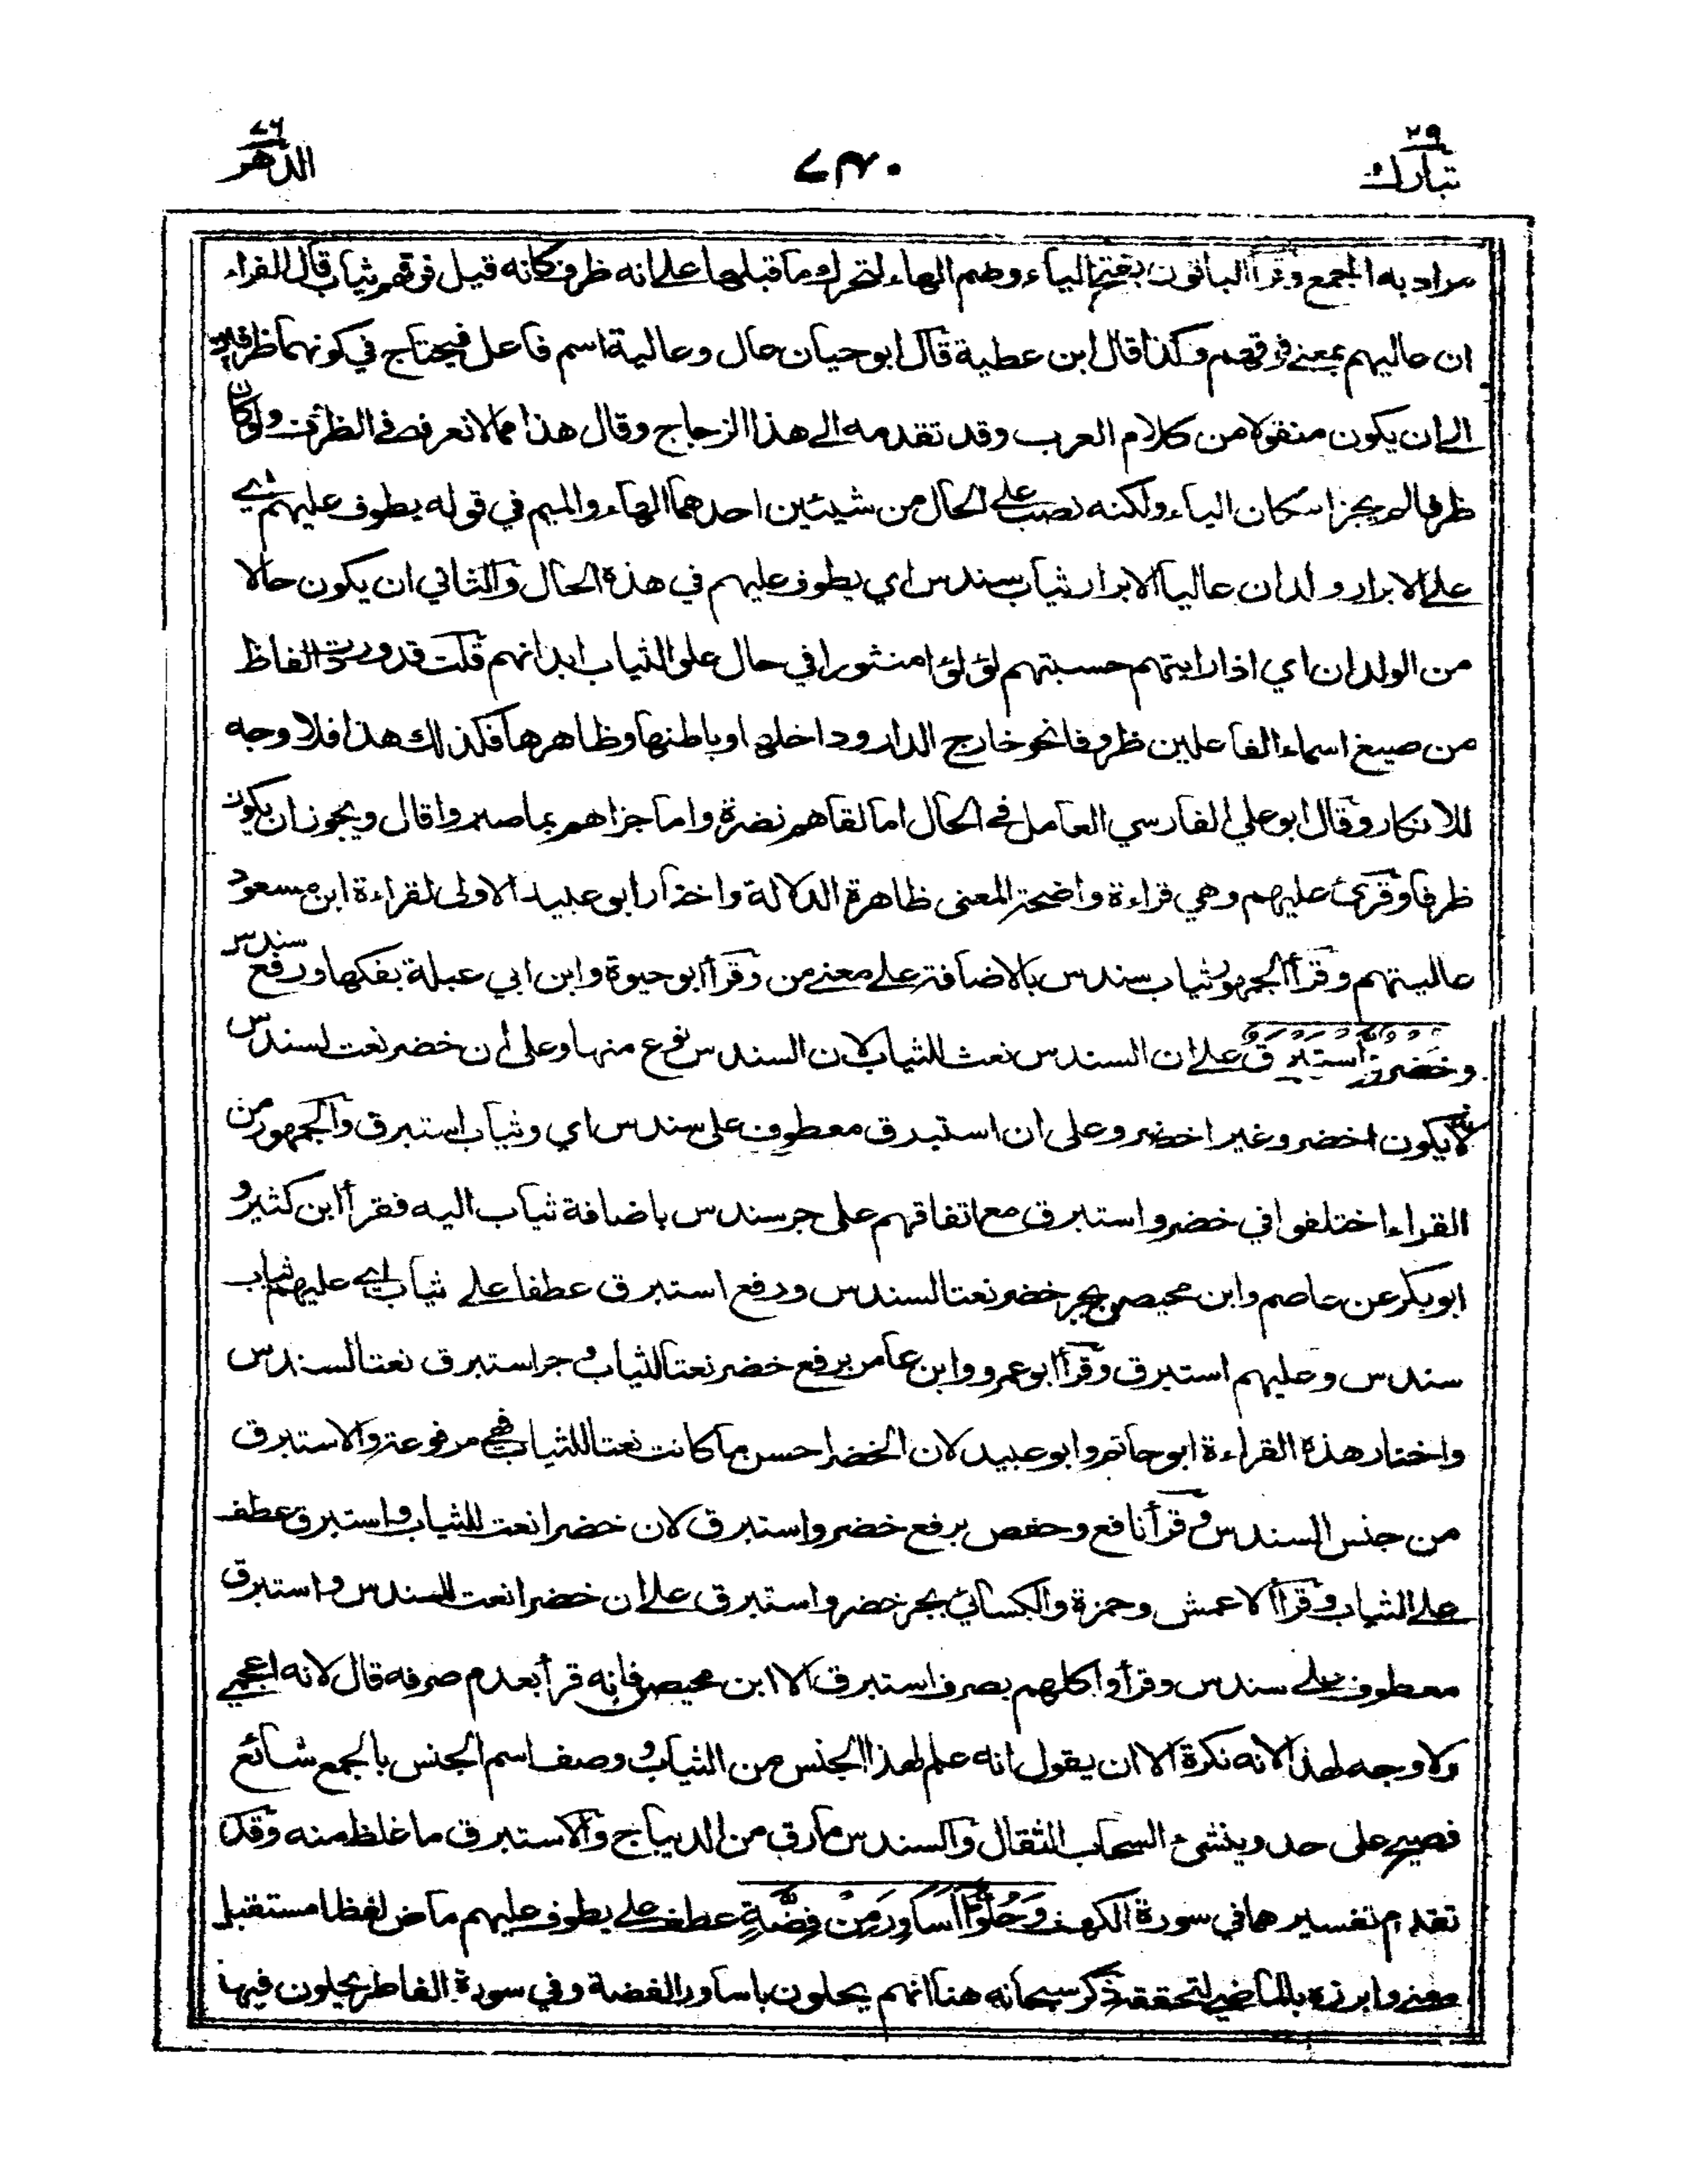 ٢٩
تبارك
٧٣٠
٧٦
الدهر
مراد به الجمع وقرأ الباقون بفتح الياء وضم الهاء لتحرك ما قبلها على انه ظرف كانه قيل فوقهم ثياب قال الفراء
ان عاليهم بمعنى فوقهم وكذا قال ابن عطية قال ابوحيان حال وعالية اسم فاعل فيحتاج في كونهما ظرفين
الى ان يكون منقولا من كلام العرب وقد تقدمه الى هذا الزجاج وقال هذا مما لا نعرفه في الظرف ولو كان
ظرفا لم يجز اسكان الياء ولكنه نصب على الحال من شيئين احدهما الهاء والميم في قوله يطوف عليهم اي
على الابرار ولدان عاليا الابرار ثياب سندس اي يطوف عليهم في هذة الحال والثاني ان يكون حالا
من الولدان اي اذا رايتهم حسبتهم لؤلؤا منثورا في حال علو الثياب ابدانهم قلت قد وردت الفاظ
من صيغ اسماء الفاعلين ظروفا نحو خارج الدار وداخلها وباطنها وظاهرها فكذلك هذا فلا وجه
للانكار وقال ابو علي الفارسي العامل في الحال اما لقاهم نضرة واما جزاهم بما صبروا قال ويجوز ان يكون
ظرفا وقرئ عليهم وهي قراءة واضحة المعنى ظاهرة الدلالة واختار ابو عبيد الاولى لقراءة ابن مسعود
عاليتهم وقرأ الجمهور ثياب سندس بالاضافة على معنى من وقرأ ابو حيوة وابن ابي عبلة بفكها ورفع سندس
وخضر واستبرق على ان السندس نعت للثياب لان السندس نوع منها وعلى ان خضر نعت لسندس
لانه يكون اخضر وغير اخضر وعلى ان استبرق معطوف على سندس اي وثياب استبرق والجمهور من
القراء اختلفوا في خضر واستبرق مع اتفاقهم على جر سندس باضافة ثياب اليه فقرأ ابن كثير و
ابو بكر عن عاصم وابن محيصن بجر خضر نعتا لسندس ورفع استبرق عطفا على ثياب اي عليهم ثياب
سندس وعليهم استبرق وقرأ ابو عمرو وابن عامر برفع خضر نعتا لثياب وجر استبرق نعتا لسندس
واختار هذة القراءة ابو حاتم وابو عبيد لان الخضر احسن ما كانت نعتا للثياب فهي مرفوعة والاستبرق
من جنس السندس وقرأ نافع وحفص برفع خضر واستبرق لان خضرا نعت للثياب واستبرق عطف
على الثياب وقرأ الاعمش وحمزة والكسائي بجر خضر واستبرق على ان خضرا نعت للسندس واستبرق
معطوف على سندس وقرأوا كلهم بصرف استبرق الا ابن محيصن فانه قرأ بعدم صرفه قال لانه اعجمي
ولا وجه لهذا لانه نكرة الا ان يقول انه علم لهذا الجنس من الثياب ووصف اسم الجنس بالجمع شائع
فصيح على حد وينشئ السحاب الثقال والسندس ما رق من الديباج والاستبرق ما غلظ منه وقد
تقدم تفسيرهما في سورة الكهف وَحُلُّوْا اَسَاوِرَ مِنْ فِضَّةٍ عطف على يطوف عليهم ماض لفظا مستقبل
معنى وابرزه بالماضي لتحققه ذكر سبحانه هنا انهم يحلون باساور الفضة وفي سورة الفاطر يحلون فيها